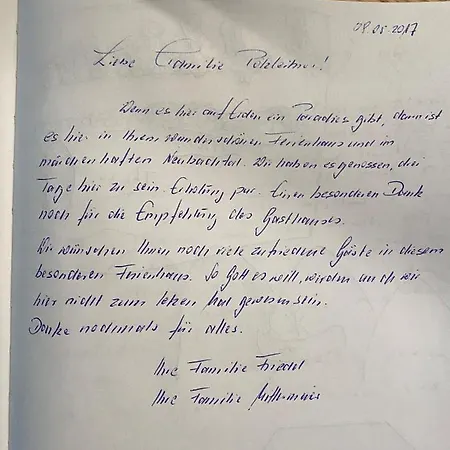 08.05.2017
Liebe Familie Potzleitner!
Wenn es hier auf Erden ein Paradies gibt, dann ist
es hier in Ihrem wunderschönen Ferienhaus und im
märchenhaften Neubachtal. Wir haben es genossen, drei
Tage hier zu sein. Erholung pur. Einen besonderen Dank
noch für die Empfehlung des Gasthauses.
Wir wünschen Ihnen noch viele zufriedene Gäste in diesem
besonderen Ferienhaus. So Gott es will, werden auch wir
hier nicht zum letzen Mal gewesen sein.
Danke nochmals für alles.
Ihre Familie Friedl
Ihre Familie